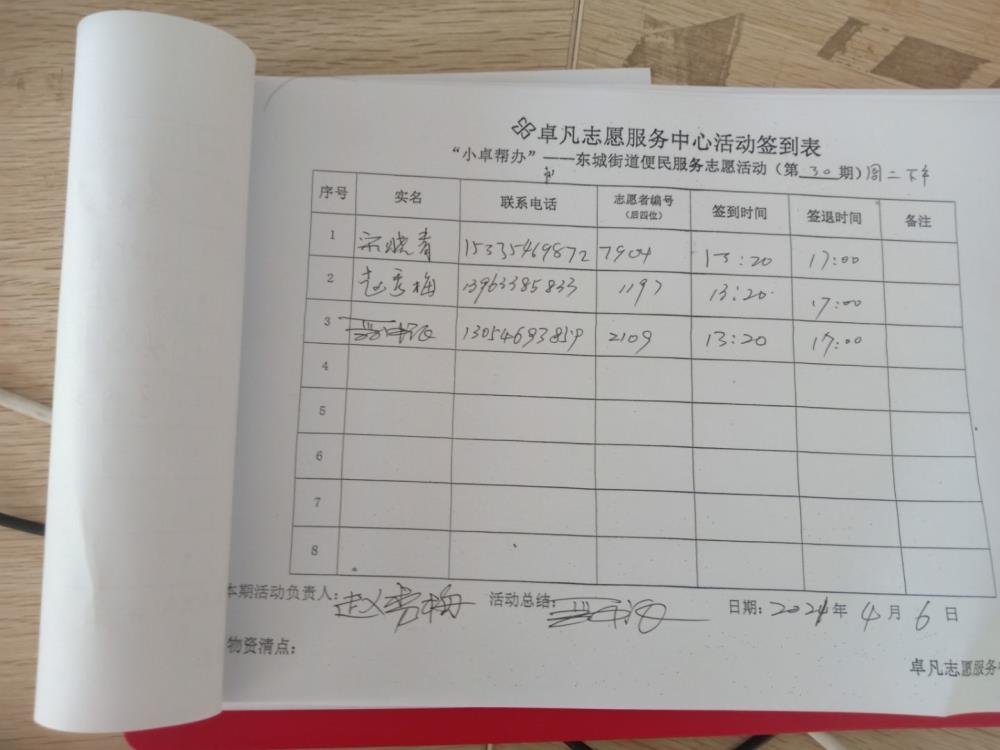 卓凡志愿服务中心活动签到表
“小卓帮办”——东城街道便民服务志愿活动（第30期）周二下午
序号 实名 联系电话 志愿者编号（后四位） 签到时间 签退时间 备注
1 宗晓青 15335469872 7904 13:20 17:00
2 赵秀梅 13963385833 1197 13:20 17:00
3 13054693859 2109 13:20 17:00
4
5
6
7
8
本期活动负责人：赵秀梅 活动总结： 日期：2021年4月6日
物资清点：
卓凡志愿服务